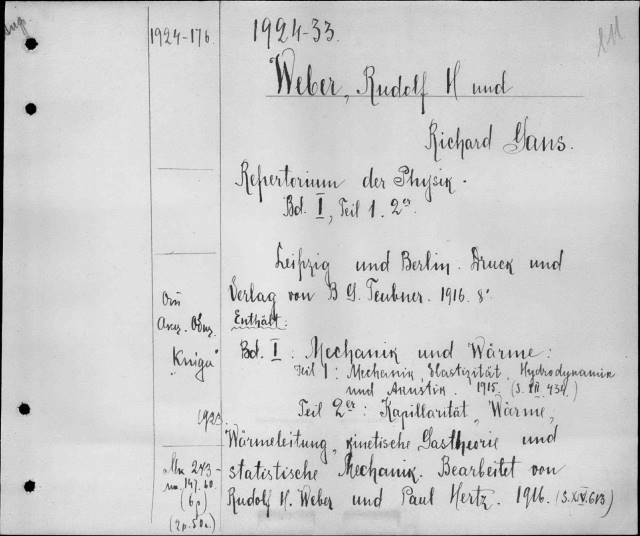 1924-176
1924-33.
Weber, Rudolf H und
Richard Gans.
Repertorium der Physik.
Bd. I, Teil 1. 2er.
Leipzig und Berlin. Druck und
Verlag von B G. Teubner. 1916. 8°.
Enthält:
Bd. I: Mechanik und Wärme:
Teil 1: Mechanik, Elastizität, Hydrodynamik
und Akustik. 1915. (S. XII 434.)
Teil 2er: Kapillarität, Wärme,
Wärmeleitung, kinetische Gastheorie und
statistische Mechanik. Bearbeitet von
Rudolf H. Weber und Paul Hertz. 1916. (S. XIV. 613)
"Kniga"
192
147.60
(6 p)
(2p.50c.)